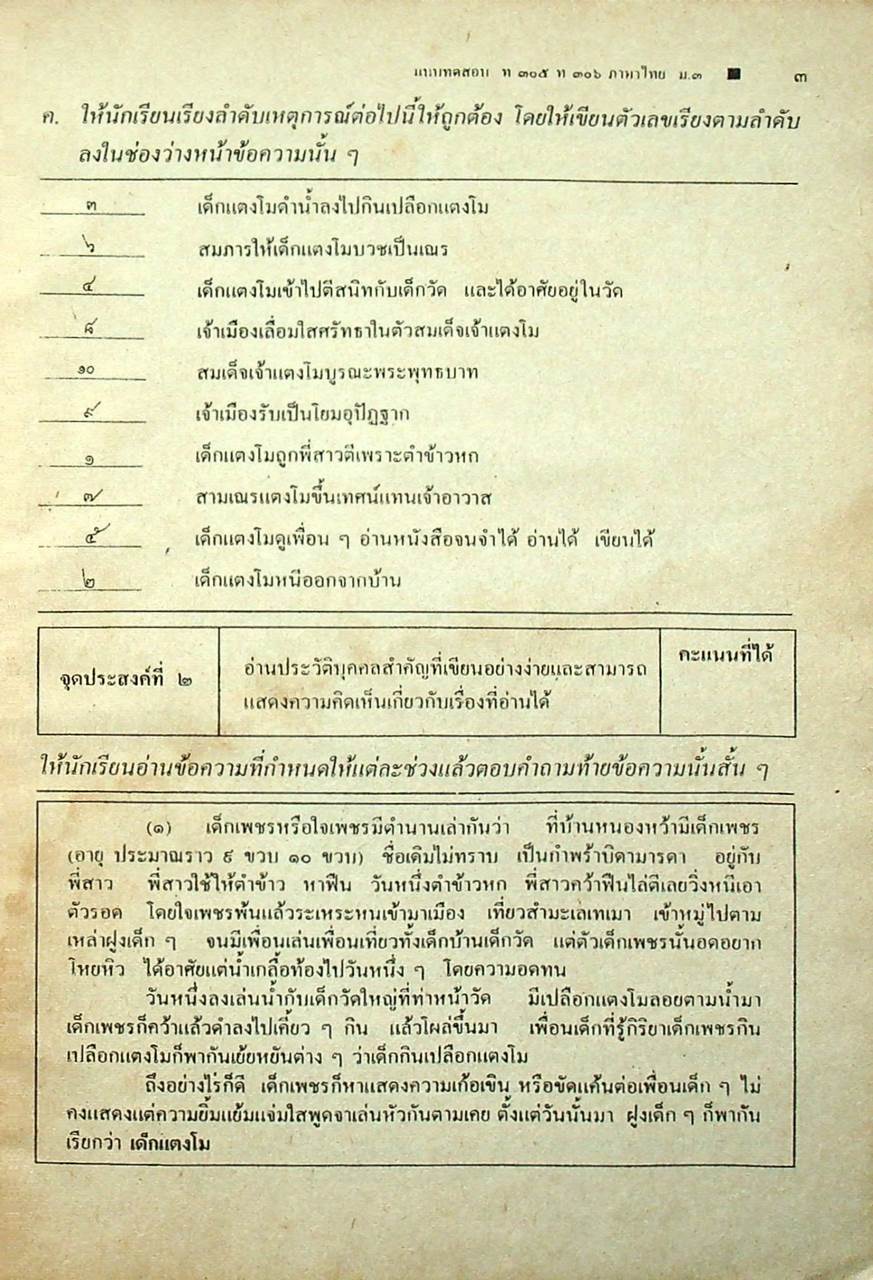 แบบทดสอบ ท ๓๐๕ ท ๓๐๖ ภาษาไทย ม.๓ ■ ๓
ค. ให้นักเรียนเรียงลำดับเหตุการณ์ต่อไปนี้ให้ถูกต้อง โดยให้เขียนตัวเลขเรียงตามลำดับ
ลงในช่องว่างหน้าข้อความนั้น ๆ
๓ เด็กแตงโมดำน้ำลงไปกินเปลือกแตงโม
๖ สมภารให้เด็กแตงโมบวชเป็นเณร
๔ เด็กแตงโมเข้าไปตีสนิทกับเด็กวัด และได้อาศัยอยู่ในวัด
๘ เจ้าเมืองเลื่อมใสศรัทธาในตัวสมเด็จเจ้าแตงโม
๑๐ สมเด็จเจ้าแตงโมบูรณะพระพุทธบาท
๙ เจ้าเมืองรับเป็นโยมอุปัฏฐาก
๑ เด็กแตงโมถูกพี่สาวตีเพราะตำข้าวหก
๗ สามเณรแตงโมขึ้นเทศน์แทนเจ้าอาวาส
๕ เด็กแตงโมดูเพื่อน ๆ อ่านหนังสือจนจำได้ อ่านได้ เขียนได้
๒ เด็กแตงโมหนีออกจากบ้าน
จุดประสงค์ที่ ๒
อ่านประวัติบุคคลสำคัญที่เขียนอย่างง่ายและสามารถ
แสดงความคิดเห็นเกี่ยวกับเรื่องที่อ่านได้
คะแนนที่ได้
ให้นักเรียนอ่านข้อความที่กำหนดให้แต่ละช่วงแล้วตอบคำถามท้ายข้อความนั้นสั้น ๆ
(๑) เด็กเพชรหรือใจเพชรมีตำนานเล่ากันว่า ที่บ้านหนองหว้ามีเด็กเพชร
(อายุ ประมาณราว ๙ ขวบ ๑๐ ขวบ) ชื่อเดิมไม่ทราบ เป็นกำพร้าบิดามารดา อยู่กับ
พี่สาว พี่สาวใช้ให้ตำข้าว หาฟืน วันหนึ่งตำข้าวหก พี่สาวคว้าฟืนไล่ตีเลยวิ่งหนีเอา
ตัวรอด โดยใจเพชรพ้นแล้วระเหระหนเข้ามาเมือง เที่ยวสำมะเลเทเมา เข้าหมู่ไปตาม
เหล่าฝูงเด็ก ๆ จนมีเพื่อนเล่นเพื่อนเที่ยวทั้งเด็กบ้านเด็กวัด แต่ตัวเด็กเพชรนั้นอดอยาก
โหยหิว ได้อาศัยแต่น้ำเกลื้อท้องไปวันหนึ่ง ๆ โดยความอดทน
วันหนึ่งลงเล่นน้ำกับเด็กวัดใหญ่ที่ท่าหน้าวัด มีเปลือกแตงโมลอยตามน้ำมา
เด็กเพชรก็คว้าแล้วดำลงไปเคี้ยว ๆ กิน แล้วโผล่ขึ้นมา เพื่อนเด็กที่รู้กิริยาเด็กเพชรกิน
เปลือกแตงโมก็พากันเย้ยหยันต่าง ๆ ว่าเด็กกินเปลือกแตงโม
ถึงอย่างไรก็ดี เด็กเพชรก็หาแสดงความเก้อเขิน หรือขัดแค้นต่อเพื่อนเด็ก ๆ ไม่
คงแสดงแต่ความยิ้มแย้มแจ่มใสพูดจาเล่นหัวกันตามเคย ตั้งแต่วันนั้นมา ฝูงเด็ก ๆ ก็พากัน
เรียกว่า เด็กแตงโม